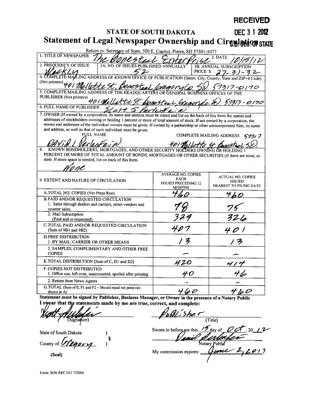 RECEIVED
DEC 31 2012
STATE OF SOUTH DAKOTA
Statement of Legal Newspaper Ownership and Circulation
Return to: Secretary of State, 500 E. Capitol, Pierre, SD 57501-5077
1. TITLE OF NEWSPAPER The Bonesteel Enterprise 2. DATE 10/15/12
3. FREQUENCY OF ISSUE Weekly
3A. NO. OF ISSUES PUBLISHED ANNUALLY 52
3B. ANNUAL SUBSCRIPTION PRICE $
4. COMPLETE MAILING ADDRESS OF KNOWN OFFICE OF PUBLICATION (Street, City, County, State and ZIP+4 Code) (Not printers)
401 Mellette St, Bonesteel, Gregory SD 57317-0170
5. COMPLETE MAILING ADDRESS OF THE HEADQUARTERS OR GENERAL BUSINESS OFFICES OF THE PUBLISHERS (Not printers)
401 Mellette St Bonesteel, Gregory SD 57317-0170
6. FULL NAME OF PUBLISHER
7. OWNER (If owned by a corporation, its name and address must be stated and list on the back of this form the names and
addresses of stockholders owning or holding 1 percent or more of total amount of stock. If not owned by a corporation, the
names and addresses of the individual owners must be given. If owned by a partnership or other unincorporated firm, its name
and address, as well as that of each individual must be given.
FULL NAME
COMPLETE MAILING ADDRESS
401 Mellette St Bonesteel, SD
8. KNOWN BONDHOLDERS, MORTGAGES, AND OTHER SECURITY HOLDERS OWNING OR HOLDING 1
PERCENT OR MORE OF TOTAL AMOUNT OF BONDS, MORTGAGES OR OTHER SECURITIES (If there are none, so
state. If more space is needed, list on back of this form.
None
9. EXTENT AND NATURE OF CIRCULATION
AVERAGE NO. COPIES EACH ISSUED PRECEDING 12 MONTHS
ACTUAL NO. COPIES ISSUED NEAREST TO FILING DATE
A. TOTAL NO. COPIES (Net Press Run) 460 460
B. PAID AND/OR REQUESTED CIRCULATION
1. Sales through dealers and carriers, street vendors and counter sales. 78 75
2. Mail Subscription (Paid and or requested) 329 326
C. TOTAL PAID AND/OR REQUESTED CIRCULATION (Sum of 9B1 and 9B2) 407 401
D. FREE DISTRIBUTION
1. BY MAIL, CARRIER OR OTHER MEANS 13 13
2. SAMPLES, COMPLIMENTARY AND OTHER FREE COPIES
E. TOTAL DISTRIBUTION (Sum of C, D1 and D2) 420 414
F. COPIES NOT DISTRIBUTED
1. Office use, left over, unaccounted, spoiled after printing 40 46
2. Return from News Agents
G. TOTAL (Sum of E, F1 and F2 - Should equal net press run shown in A) 460 460
Statement must be signed by Publisher, Business Manager, or Owner in the presence of a Notary Public
I swear that the statements made by me are true, correct, and complete:
Publisher
(Signature) (Title)
State of South Dakota )
§
County of Gregory )
Sworn to before me this 15 day of Oct, 20 12
Notary Public
(Seal)
My commission expires: June 2, 2017
Form: SOS REC 051 7/2004